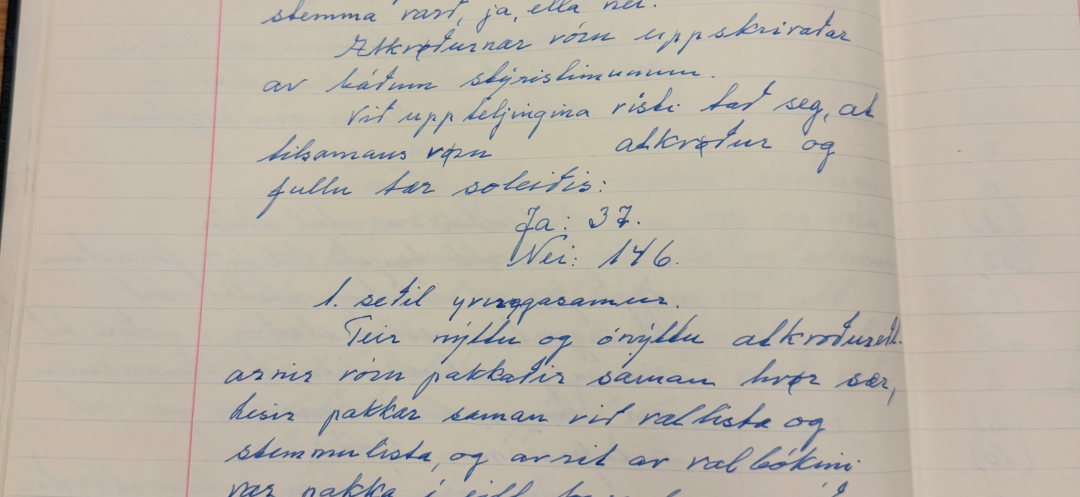 stemma varð, ja, ella nei.
Atkvøðurnar vóru uppskrivaðar
av báðum stýrislimunum.
Við uppteljingina vísti tað seg, at
tilsamans vóru atkvøður og
fullu tær soleiðis:
Ja: 37.
Nei: 146.
1. seðil ivingasamur.
Teir nýttu og ónýttu atkvøðuseðl-
arnir vóru pakkaðir saman hvør sær,
hesir pakkar saman við vallista og
stemmulista, og avrit av valbókini
var pakka í eitt